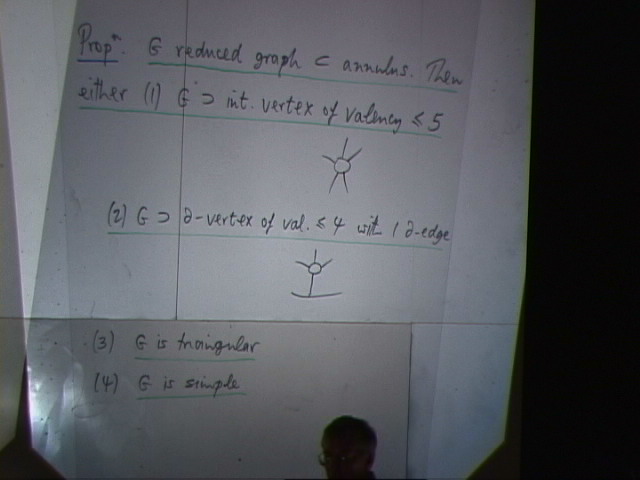 Propⁿ. G reduced graph ⊂ annulus. Then
either (1) G ⊃ int. vertex of valency ≤ 5
(2) G ⊃ ∂-vertex of val. ≤ 4 with 1 ∂-edge
(3) G is triangular
(4) G is simple